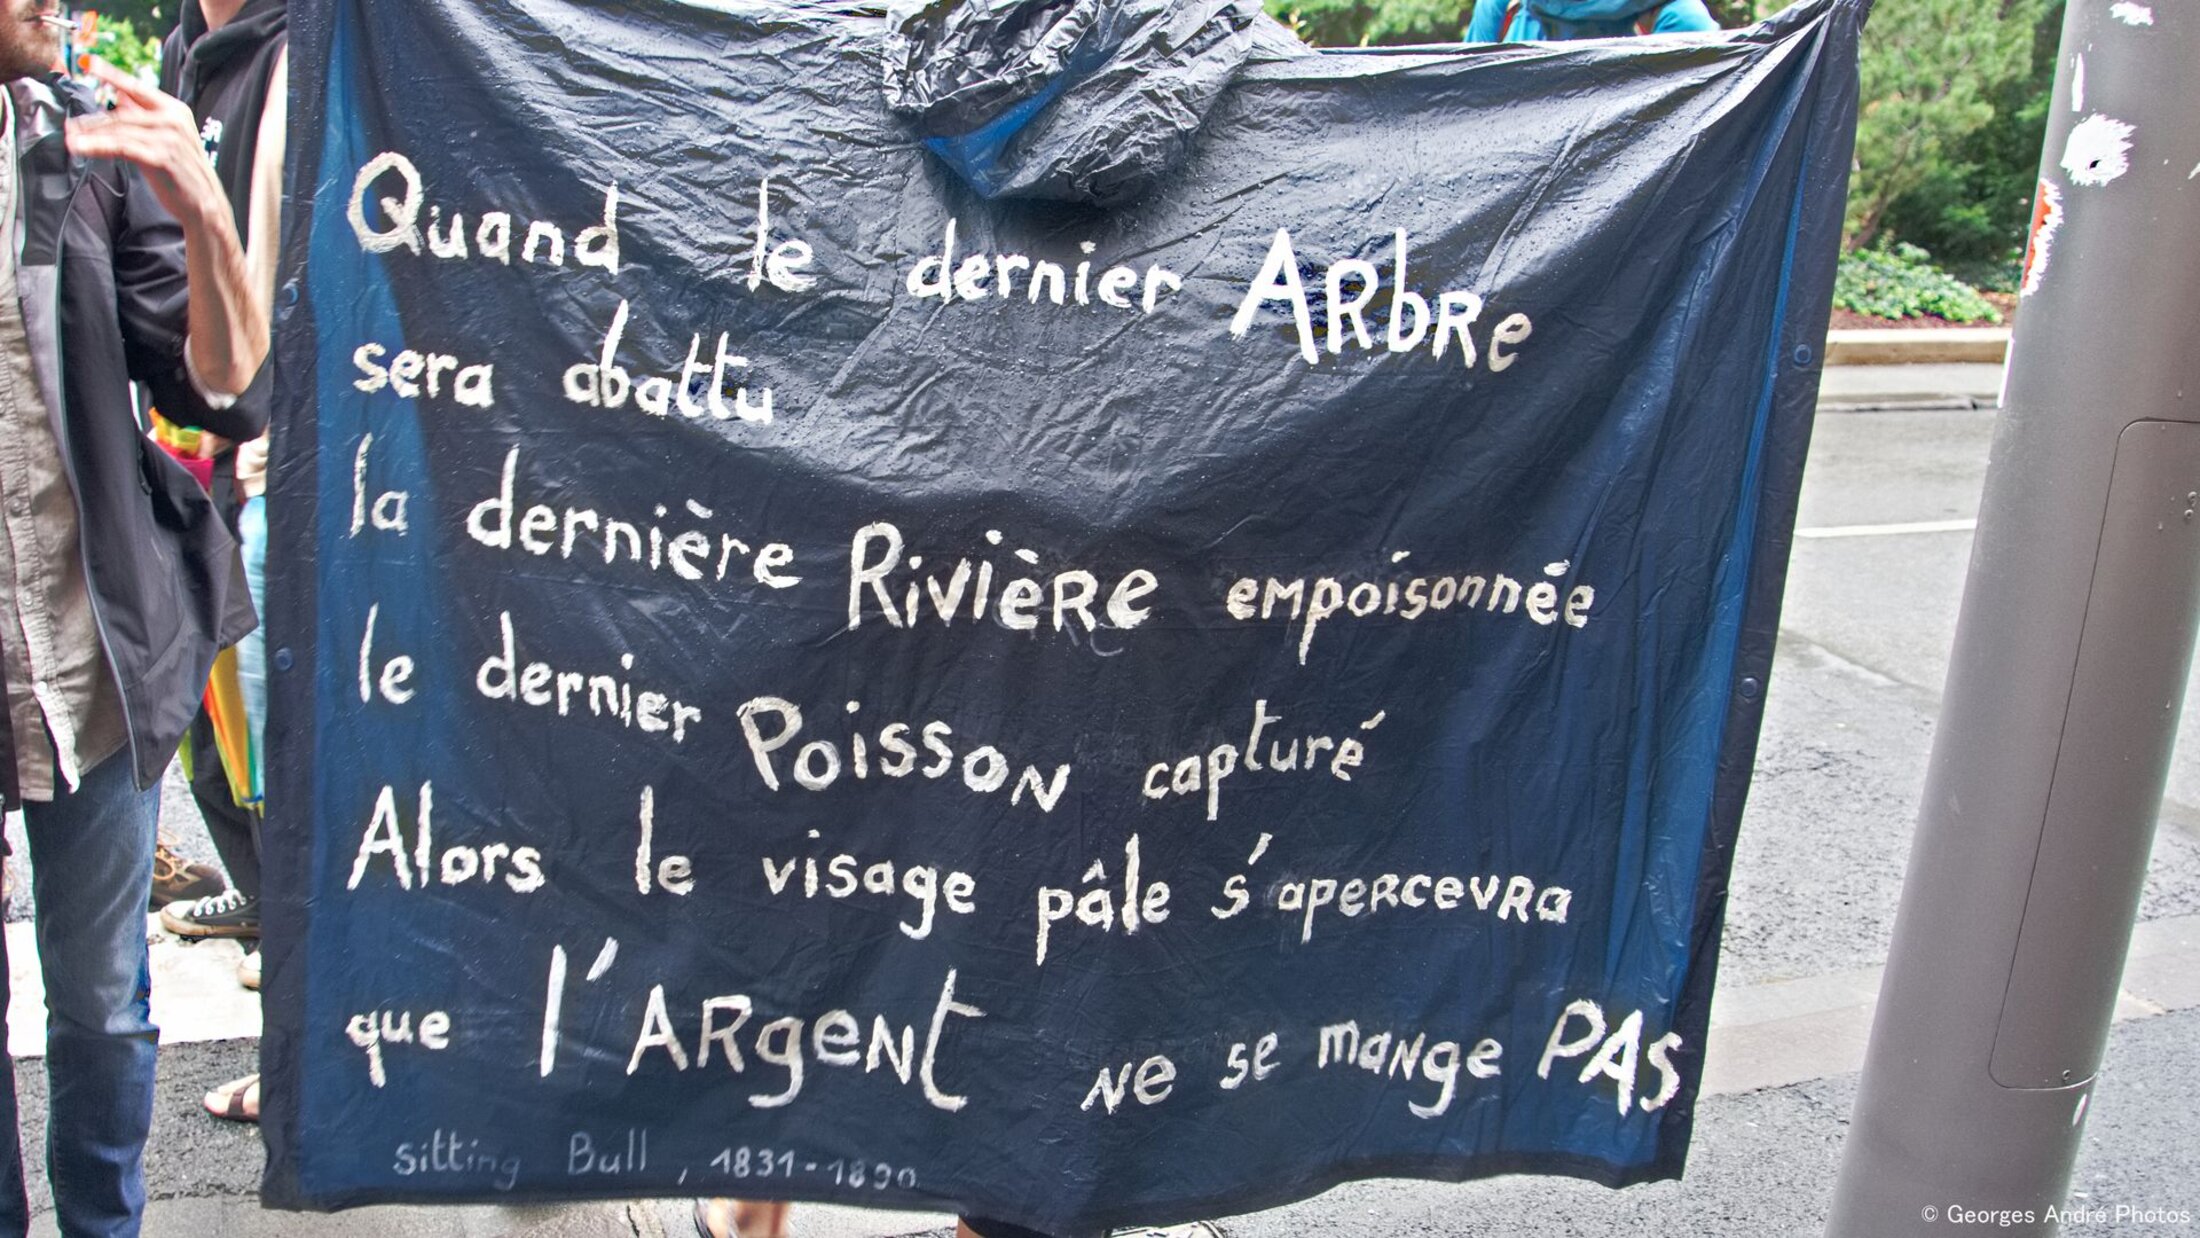 Quand le dernier ARbRe
sera abattu
la dernière RivièRe empoisonnée
le dernier PoissoN capturé
Alors le visage pâle s'apeRceVRa
que l'ARgeNt Ne se maNge PAS
sitting Bull, 1831-1890
© Georges André Photos